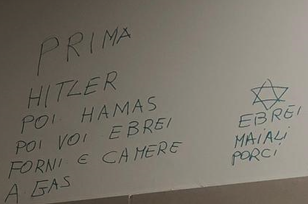 PRIMA
HITLER
POI HAMAS
POI VOI EBREI
FORNI E CAMERE
A GAS
EBREI
MAIALI
PORCI